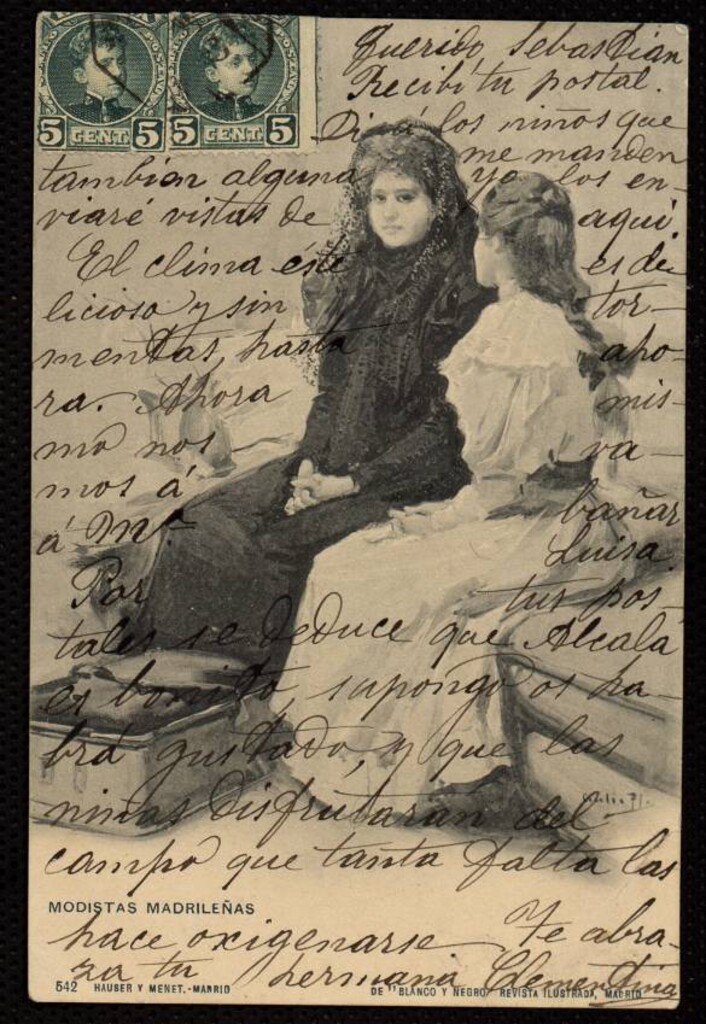 5 CENT. 5 5 CENT. 5
Querido Sebastian
Recibí tu postal.
Di á los niños que
me manden
tambien alguna yo los en-
viaré vistas de aqui.
El clima éste es de-
licioso y sin tor-
mentas, hasta aho-
ra. Ahora mis-
mo nos va-
mos á bañar
á Mª Luisa.
Por tus pos-
tales se deduce que Alcalá
es bonito, supongo os ha-
brá gustado, y que las
niñas disfrutarán del
campo que tanta falta las
MODISTAS MADRILEÑAS
hace oxigenarse Te abra-
za tu hermana Clementina
542 HAUSER Y MENET.-MADRID DE "BLANCO Y NEGRO" REVISTA ILUSTRADA, MADRID